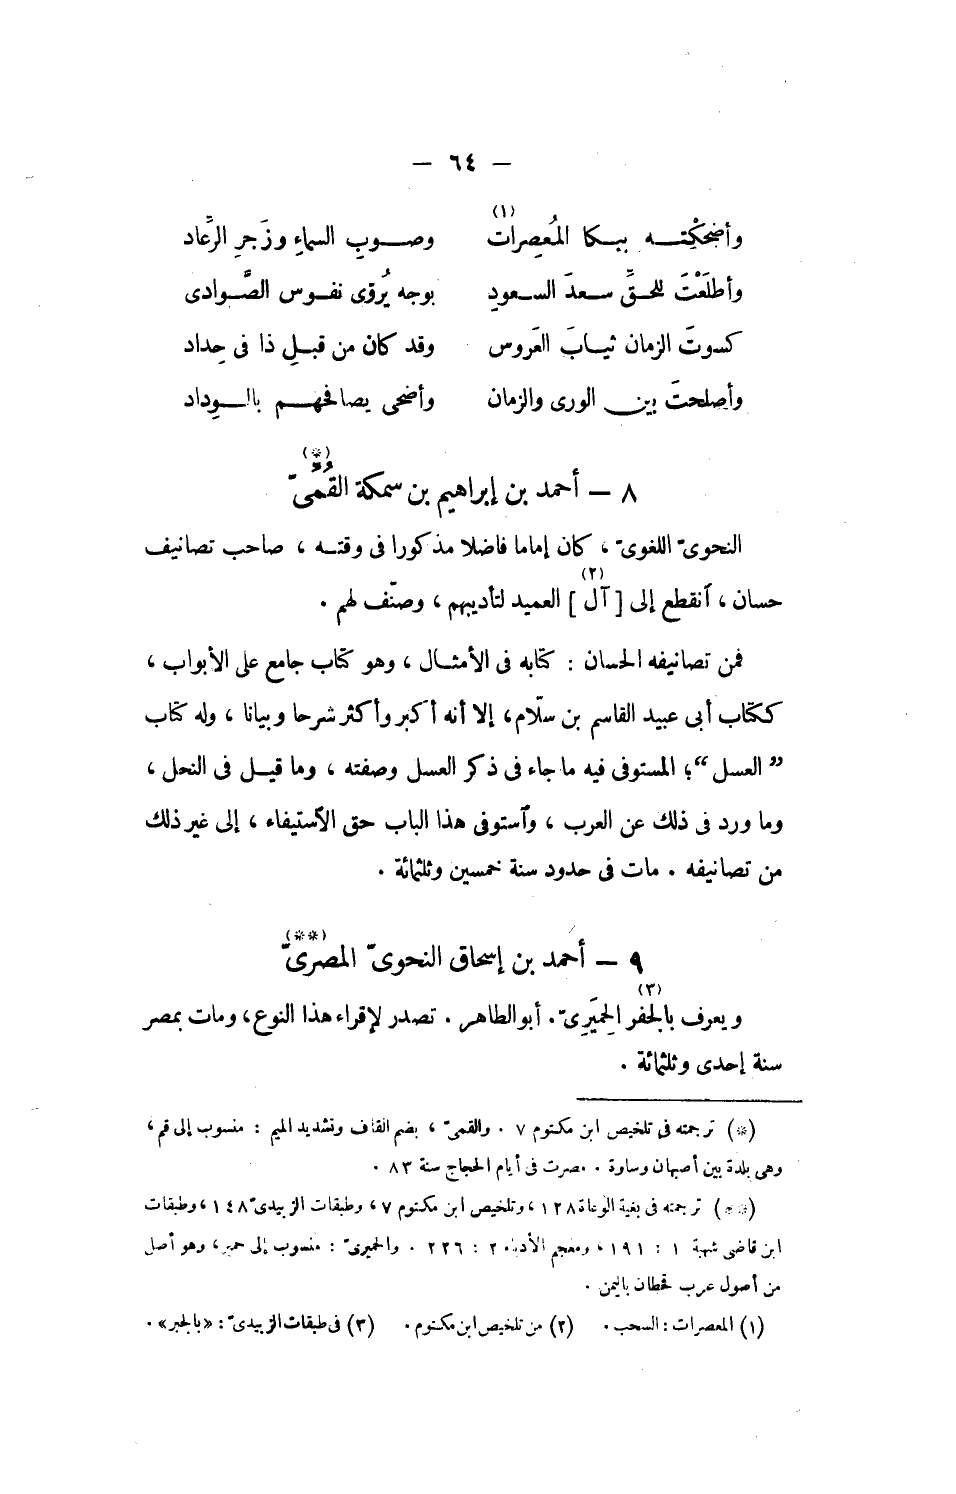 — ٦٤ —
وأضحكْتَــه ببكا المُعصِرات (١) وصوبِ السماءِ وزَجرِ الرَّعاد
وأطلَعْتَ للحقِّ سعدَ السعودِ بوجه يُرَوّى نفوس الصَّوادى
كسوتَ الزمان ثيابَ العَروس وقد كان من قبلِ ذا فى حِداد
وأصلحتَ بين الورى والزمان وأضحى يصافحهم بالوِداد
٨ — أحمد بن إبراهيم بن سمكة القُمّىّ (*)
النحوىّ اللغوىّ، كان إماما فاضلا مذكورا فى وقته، صاحب تصانيف
حسان، ٱنقطع إلى [آل] (٢) العميد لتأديبهم، وصنّف لهم .
فمن تصانيفه الحسان : كتابه فى الأمثال، وهو كتاب جامع على الأبواب،
ككتاب أبى عبيد القاسم بن سلّام، إلا أنه أكبر وأكثر شرحا وبيانا، وله كتاب
”العسل“؛ المستوفى فيه ما جاء فى ذكر العسل وصفته، وما قيل فى النحل،
وما ورد فى ذلك عن العرب، وٱستوفى هذا الباب حق الٱستيفاء، إلى غير ذلك
من تصانيفه . مات فى حدود سنة خمسين وثلثمائة .
٩ — أحمد بن إسحاق النحوىّ المصرىّ (**)
ويعرف بالجفر (٣) الحِميَرىّ. أبو الطاهر . تصدر لإقراء هذا النوع، ومات بمصر
سنة إحدى وثلثمائة .
(*) ترجمته فى تلخيص ابن مكتوم ٧ . والقمىّ، بضم القاف وتشديد الميم : منسوب إلى قم،
وهى بلدة بين أصبهان وساوة . مصرت فى أيام الحجاج سنة ٨٣ .
(**) ترجمته فى بغية الوعاة ١٢٨، وتلخيص ابن مكتوم ٧، وطبقات الزبيدىّ ١٤٨، وطبقات
ابن قاضى شهبة ١ : ١٩١، ومعجم الأدباء ٢ : ٢٢٦ . والحميرىّ : منسوب إلى حمير، وهو أصل
من أصول عرب قحطان باليمن .
(١) المعصرات : السحب . (٢) من تلخيص ابن مكتوم . (٣) فى طبقات الزبيدىّ : «بالجبر» .